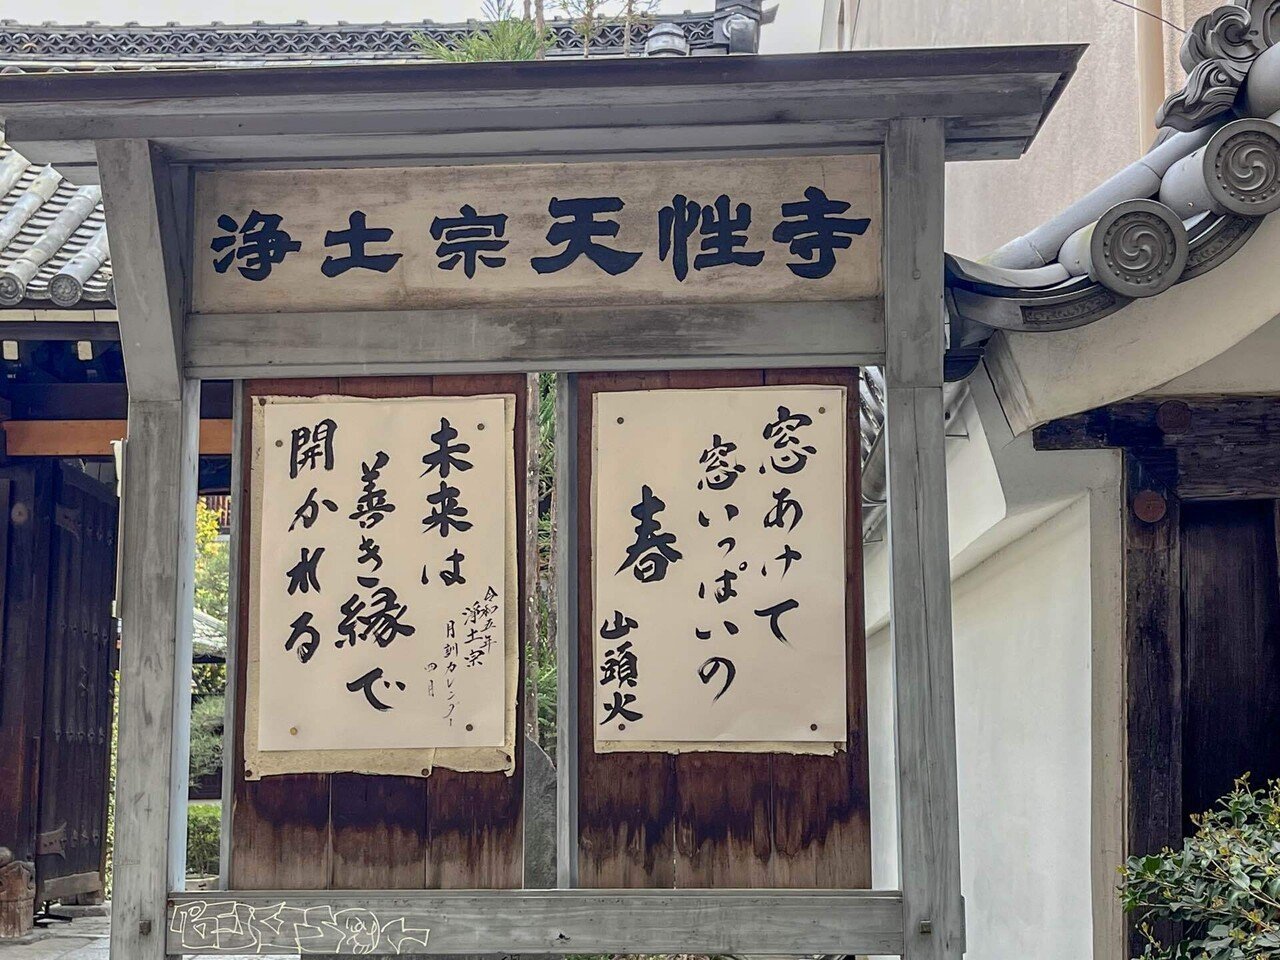 浄土宗天性寺
窓あけて
窓いっぱいの
春
山頭火
未来は
善き縁で
開かれる
令和五年
浄土宗
月刻カレンダー
四月